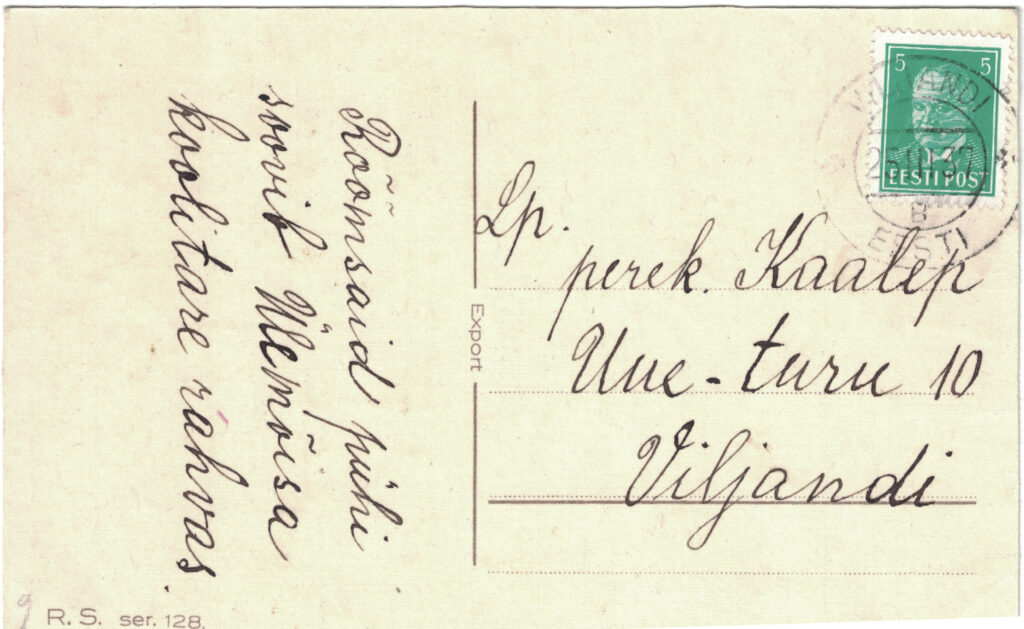 Rõõmsaid pühi
soovib Ülemõisa
koolitare rahvas.
Export
5 5
EESTI POST
VILJANDI
EESTI
B
Lp.
perek. Kaalep
Uue-turu 10
Viljandi
R. S. ser. 128.